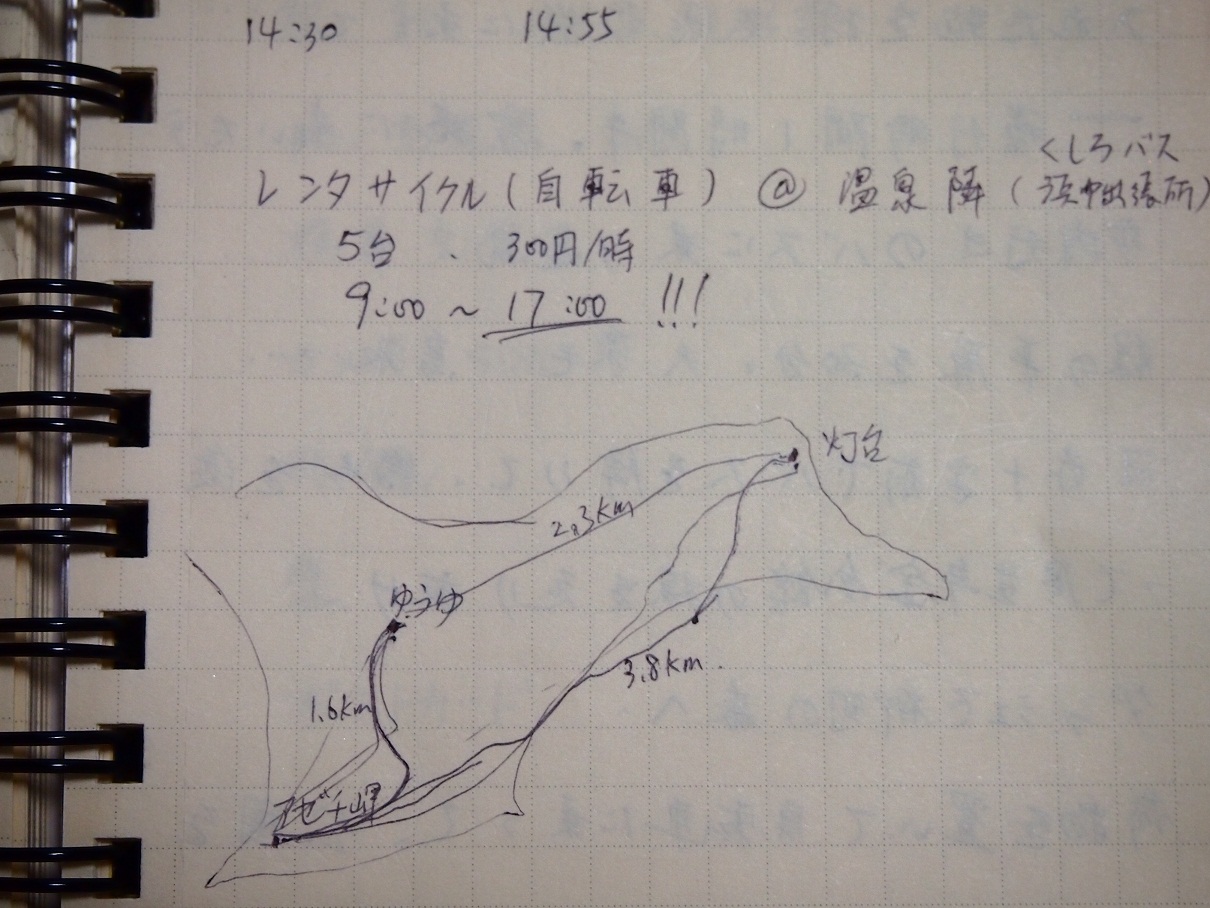 14:30 14:55
くしろバス
レンタサイクル(自転車) @ 温泉隣(浜中出張所)
5台、300円/時
9:00~17:00 !!!
灯台
2.3km
ゆうゆ
3.8km.
1.6km
アゼチ岬